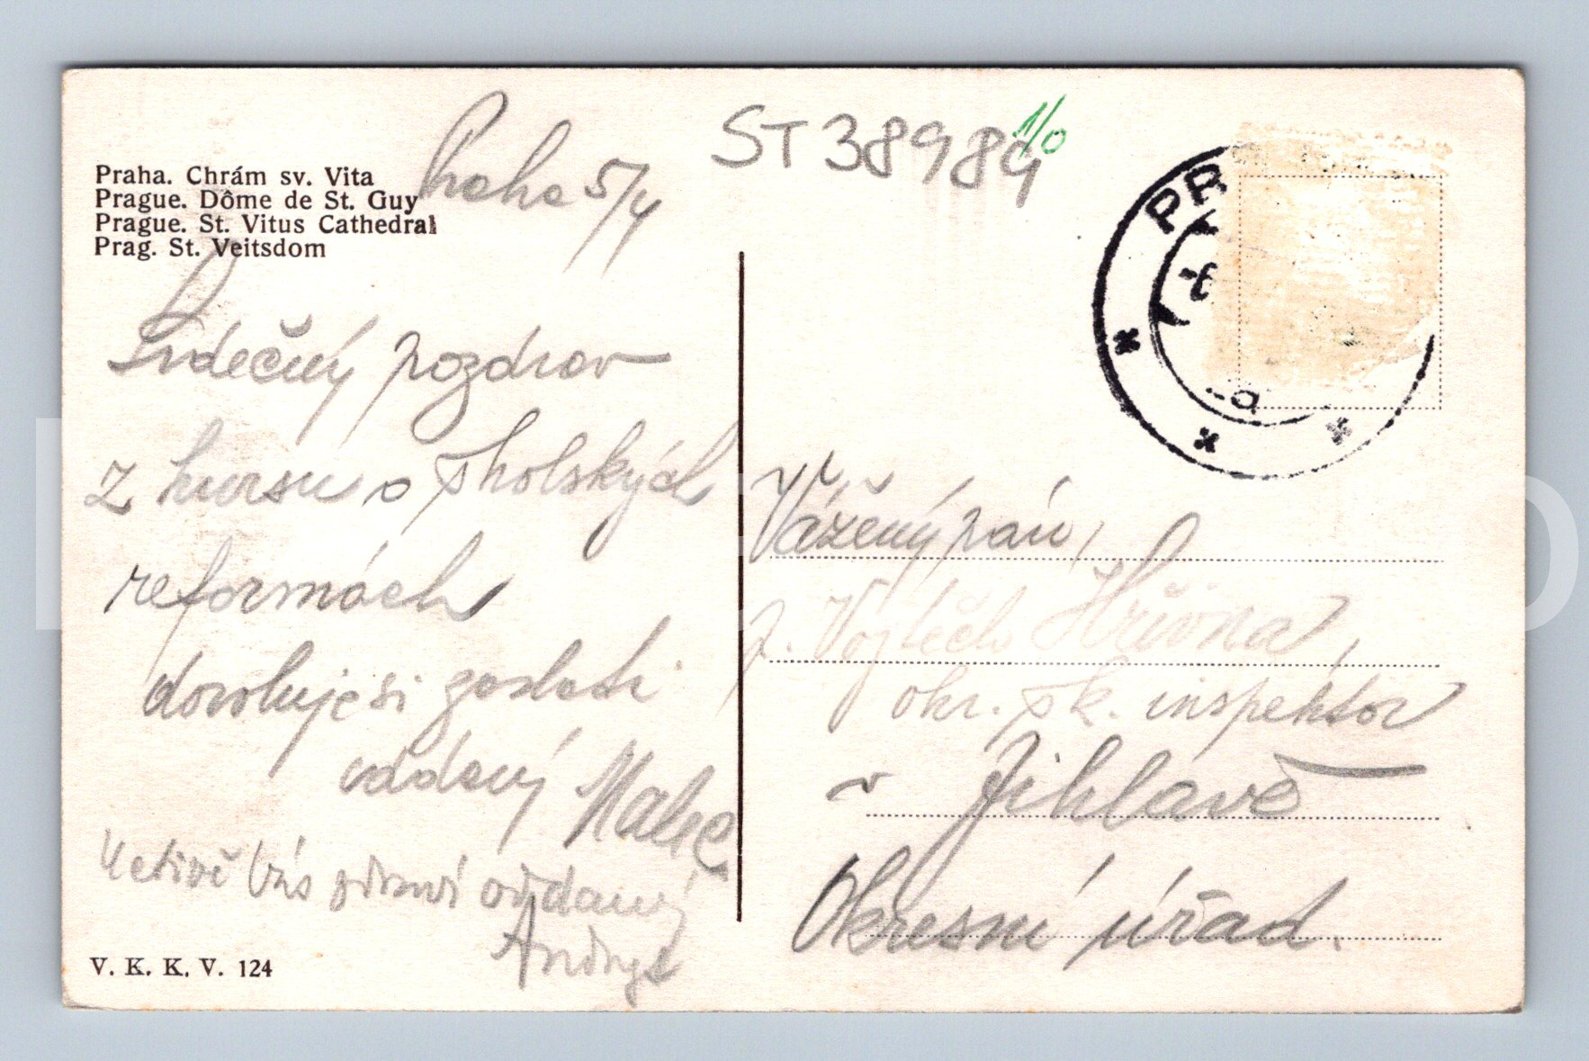 Praha. Chrám sv. Vita
Prague. Dôme de St. Guy
Prague. St. Vitus Cathedral
Prag. St. Veitsdom
Praha 5/4
ST 38989
1/0
PR
Srdečný pozdrav
z kursu o školských
reformách
dovoluje si zaslati
oddaný Malec
Uctivě Vás zdraví oddaný
V. K. K. V. 124
Vážený pán,
p. Vojtěch Hřivna,
okr. šk. inspektor
v Jihlavě
Okresní úřad.